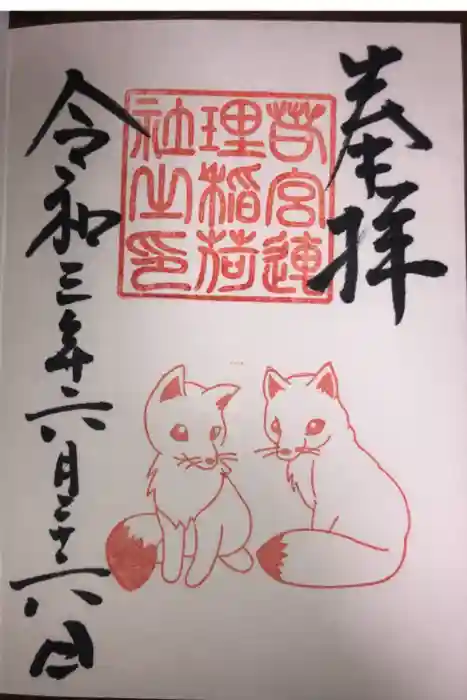 奉拝
若宮連
理稲荷
社之印
令和三年六月二十六日